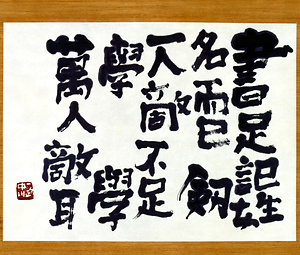 書足記姓
名而已劍
一人敵箇不足
學學
萬人敵耳